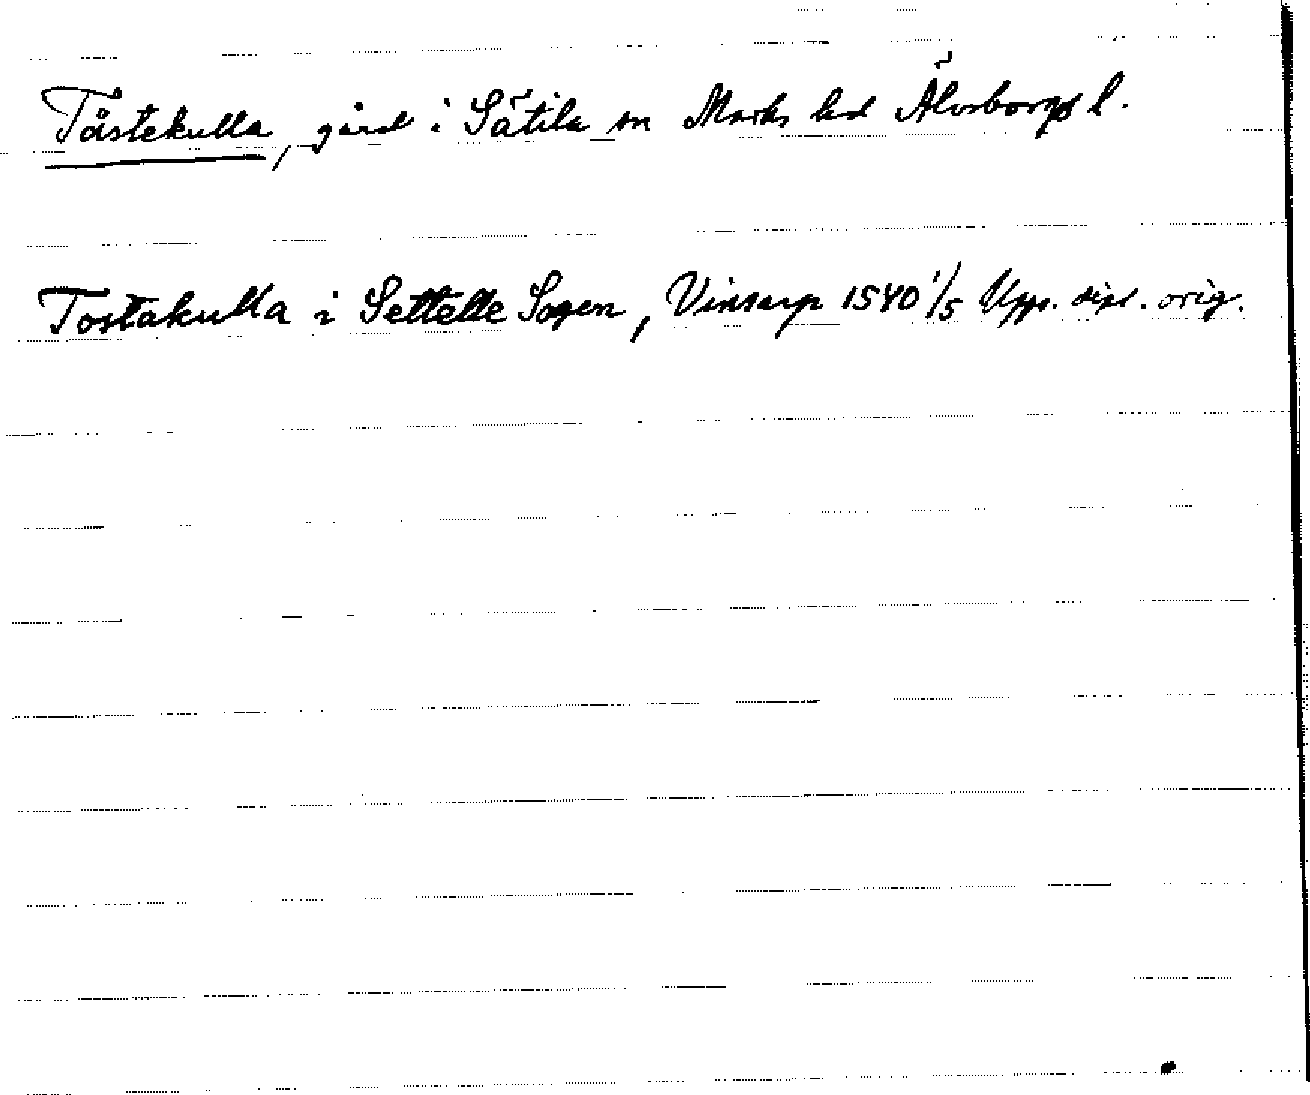 Tåstekulla, gård i Sätila sn Marks hd Älvsborgs l.
Tostakulla i Settelle Sogen, Vinsarp 1540 1/5 Upps. dipl. orig.